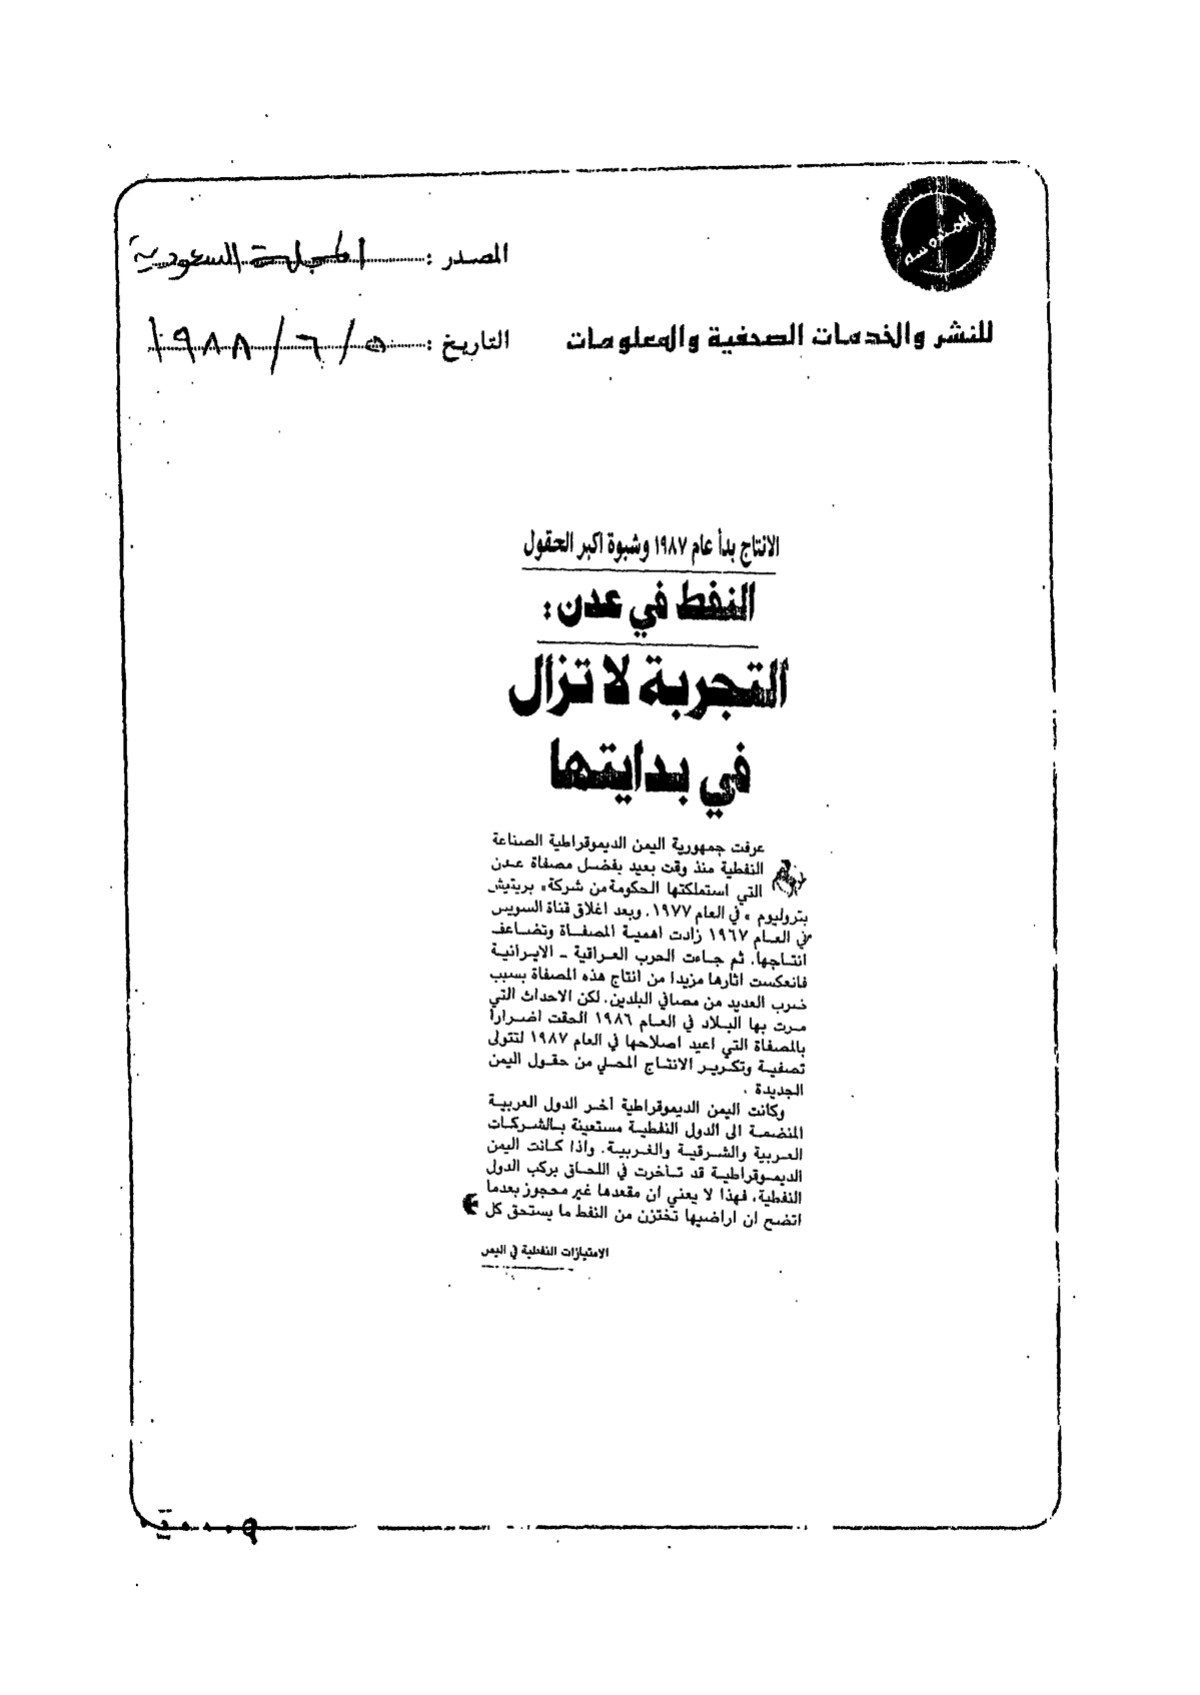 المصدر : المجلة السعودية
للنشر والخدمات الصحفية والمعلومات
التاريخ : ٥ / ٦ / ١٩٨٨
الانتاج بدأ عام ١٩٨٧ وشبوة اكبر الحقول
النفط في عدن :
التجربة لا تزال
في بدايتها
عرفت جمهورية اليمن الديموقراطية الصناعة
النفطية منذ وقت بعيد بفضل مصفاة عدن
التي استملكتها الحكومة من شركة « بريتيش
بتروليوم » في العام ١٩٧٧. وبعد اغلاق قناة السويس
في العام ١٩٦٧ زادت اهمية المصفاة وتضاعف
انتاجها. ثم جاءت الحرب العراقية ـ الايرانية
فانعكست اثارها مزيدا من انتاج هذه المصفاة بسبب
ضرب العديد من مصافي البلدين. لكن الاحداث التي
مرت بها البلاد في العام ١٩٨٦ الحقت اضرارا
بالمصفاة التي اعيد اصلاحها في العام ١٩٨٧ لتتولى
تصفية وتكرير الانتاج المحلي من حقول اليمن
الجديدة .
وكانت اليمن الديموقراطية آخر الدول العربية
المنضمة الى الدول النفطية مستعينة بالشركات
العربية والشرقية والغربية. واذا كانت اليمن
الديموقراطية قد تأخرت في اللحاق بركب الدول
النفطية، فهذا لا يعني ان مقعدها غير محجوز بعدما
اتضح ان اراضيها تختزن من النفط ما يستحق كل
الامتيازات النفطية في اليمن